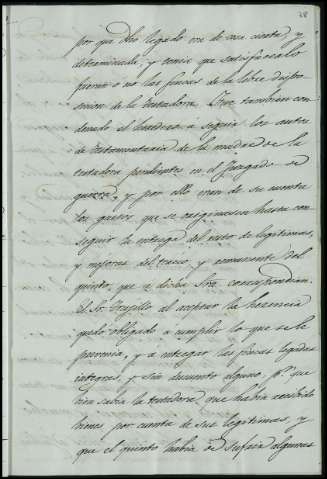 28
por que dho legado era de cosa cierta, y
determinada, y tenia que satisfacerlo
fueran ó no las fincas de la libre dispo-
sicion de la testadora. Fue tambien con-
denado el heredero á seguir los autos
de testamentaria de la madre de la
testadora pendientes en el Juzgado de
guerra, y por ello eran de su cuenta
los gastos que se originasen hasta con-
seguir la entrega del resto de legitimas,
y mejoras del tercio, y remanente del
quinto, que á dicha Sra correspondian.
El Sr Trujillo al aceptar la herencia
quedó obligado á cumplir lo que se le
prevenia, y á entregar las fincas legadas
integras, y sin descuento alguno pr que
bien sabia la testadora, que habia recibido
bienes por cuenta de sus legitimas, y
que el quinto habia de sufrir algunas